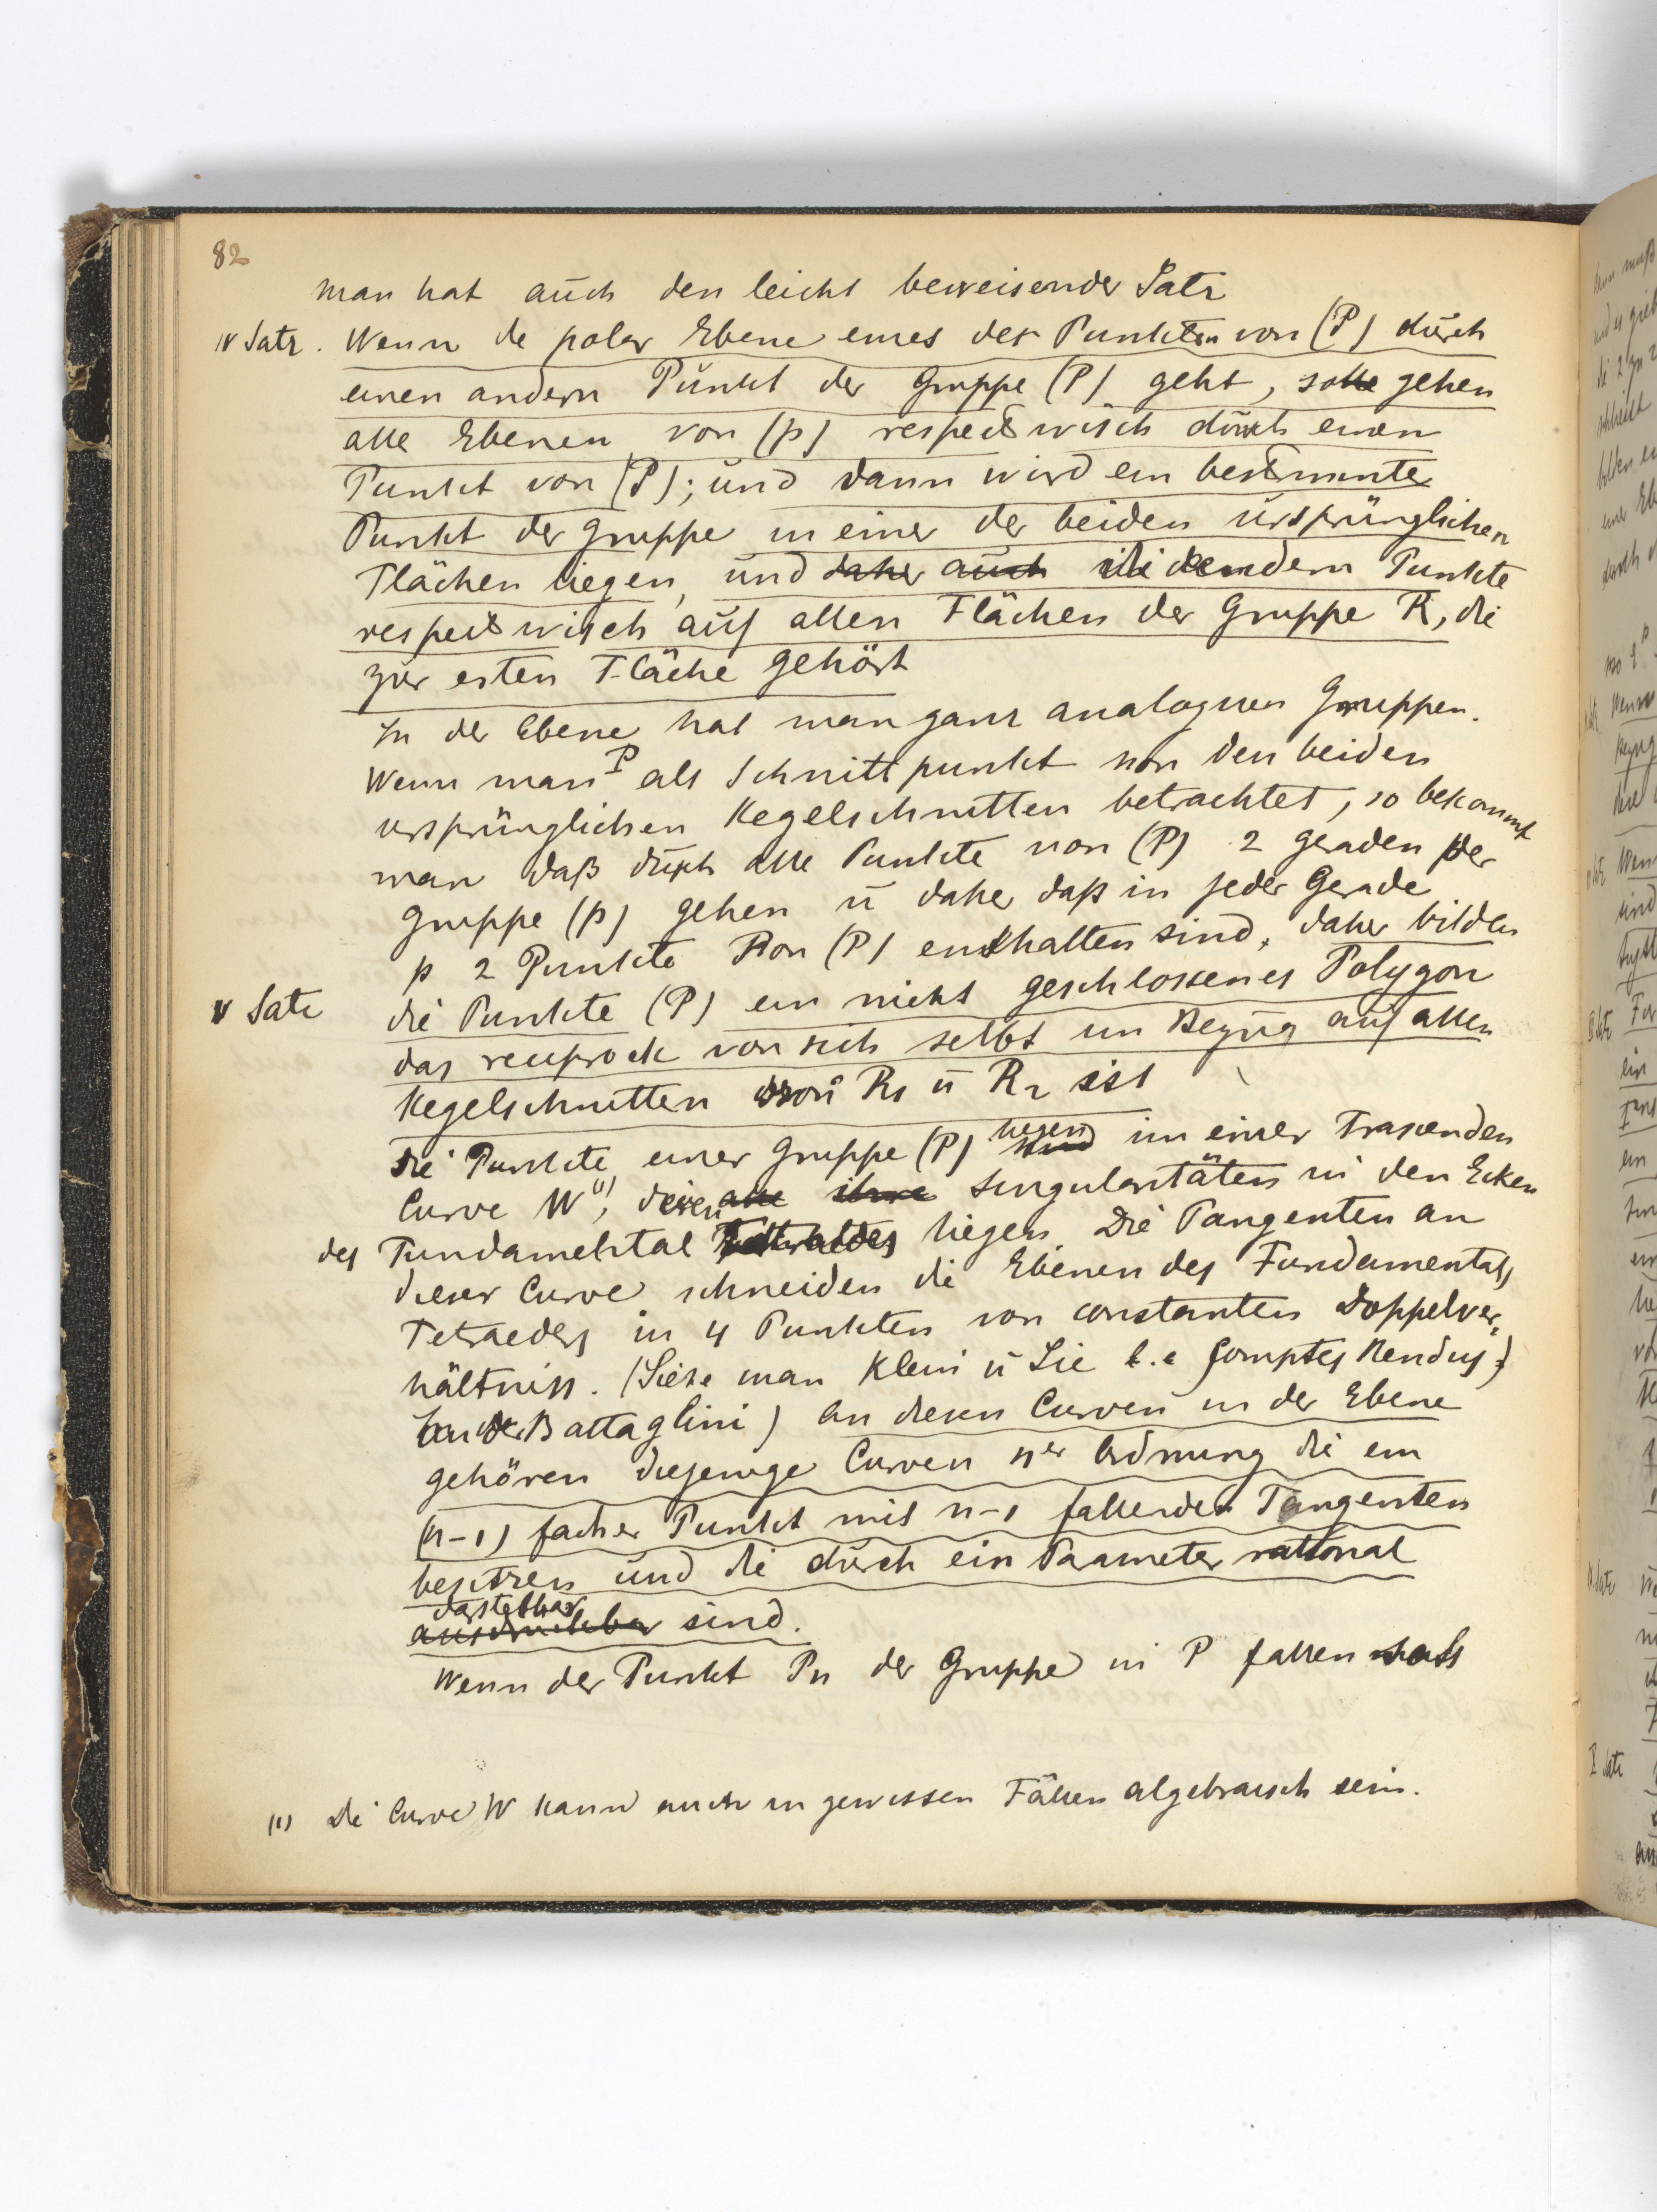 82
Man hat auch den leicht beweisender Satz
IV Satz. Wenn de polar Ebene eines der Punkten von (P) durch
einen andern Punkt der Gruppe (P) geht, so gehen
alle Ebenen von (p) respectwisch durch einen
Punkt von (P); und dann wird ein bestimmter
Punkt der Gruppe in einer der beiden ursprünglichen
Flächen liegen, und daher auch die andern Punkte
respectwisch auf allen Flächen der Gruppe R, die
zur ersten Fläche gehört
In der Ebene hat man ganz analoguen Gruppen.
Wenn man P als Schnittpunkt von den beiden
ursprünglichen Kegelschnitten betrachtet, so bekommt
man daß durch alle Punkte von (P) 2 geraden der
Gruppe (p) gehen u daher daß in jeder Gerade
p 2 Punkte von (P) enthalten sind, daher bilden
V Satz die Punkte (P) ein nicht geschlossenes Polygon
das reciprock von sich selbst im Bezug auf allen
Kegelschnitten von R1 u R2 ist
Die Punkte einer Gruppe (P) liegen sind im einer Trascenden
Curve W(1), deren alle ihre Singularitäten in den Ecken
des Fundamental Tetraedes liegen. Die Tangenten an
dieser Curve schneiden die Ebenen des Fundamentals
Tetraeders in 4 Punkten von constanten Doppelver-
hältniss. (Siehe man Klein u Lie Comptes Rendus
Battaglini) An diesen Curven in der Ebene
gehören diejenige Curven ner Ordnung die ein
(n-1) facher Punkt mit n-1 fallenden Tangenten
besitzen und die durch ein Parameter rational
darstellbar ausdruckbar sind.
Wenn der Punkt Pn der Gruppe in P fallen
(1) Die Curve W kann auch in gewissen Fällen algebraisch sein.